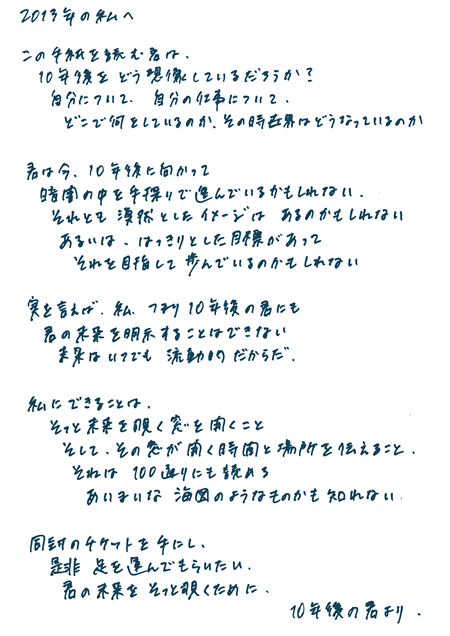 2013年の私へ
この手紙を読む君は、
10年後をどう想像しているだろうか?
自分について、自分の仕事について、
どこで何をしているのか、その時世界はどうなっているのか
君は今、10年後に向かって
暗闇の中を手探りで進んでいるかもしれない、
それとも漠然としたイメージはあるのかもしれない
あるいは、はっきりとした目標があって
それを目指して歩んでいるのかもしれない
実を言えば、私、つまり10年後の君にも
君の未来を明示することはできない
未来はいつでも流動的だからだ、
私にできることは、
そっと未来を覗く窓を開くこと
そして、その窓が開く時間と場所を伝えること、
それは100通りにも読める
あいまいな海図のようなものかも知れない、
同封のチケットを手にし、
是非足を運んでもらいたい、
君の未来をそっと覗くために、
10年後の君より、